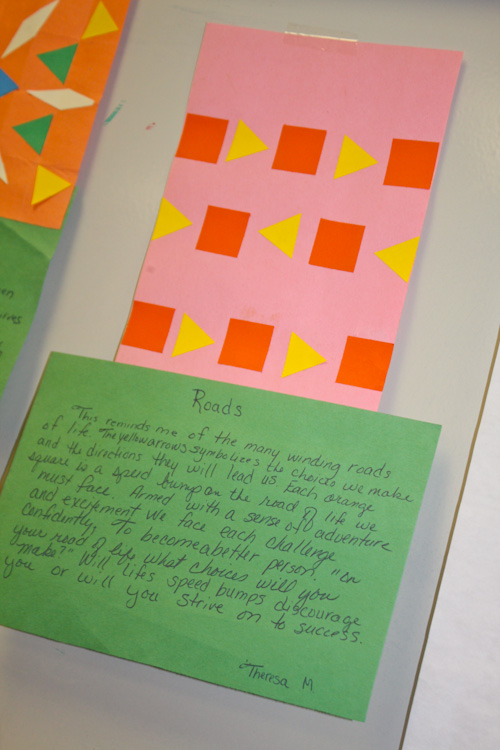 en
ives
Roads
This reminds me of the many winding roads
of life. The yellow arrows symbolizes the choices we make
and the directions they will lead us. Each orange
square is a speed bump on the road of life we
must face. Armed with a sense of adventure
and excitement we face each challenge
confidently, To become a better person. "On
your road of life what choices will you
make?" Will lifes speed bumps discourage
you or will you strive on to success.
Theresa M